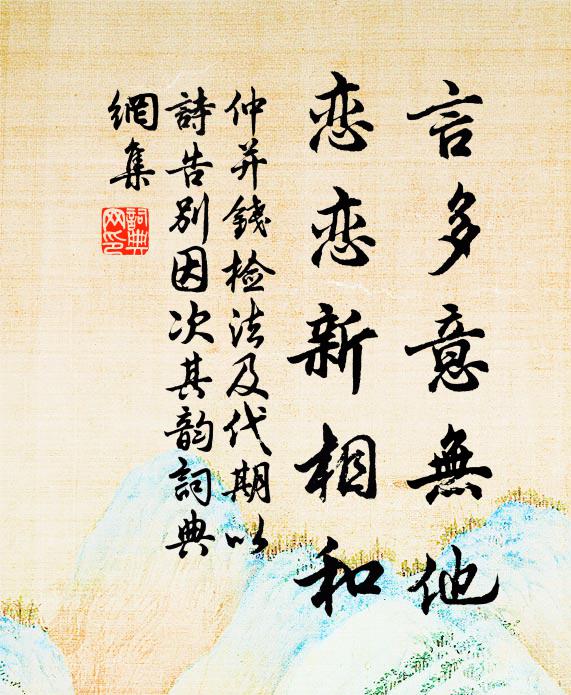 言多意無他
恋恋新相和
仲并錢检法及代期以
詩告别因次其韵詞典
網集
詞典
网印